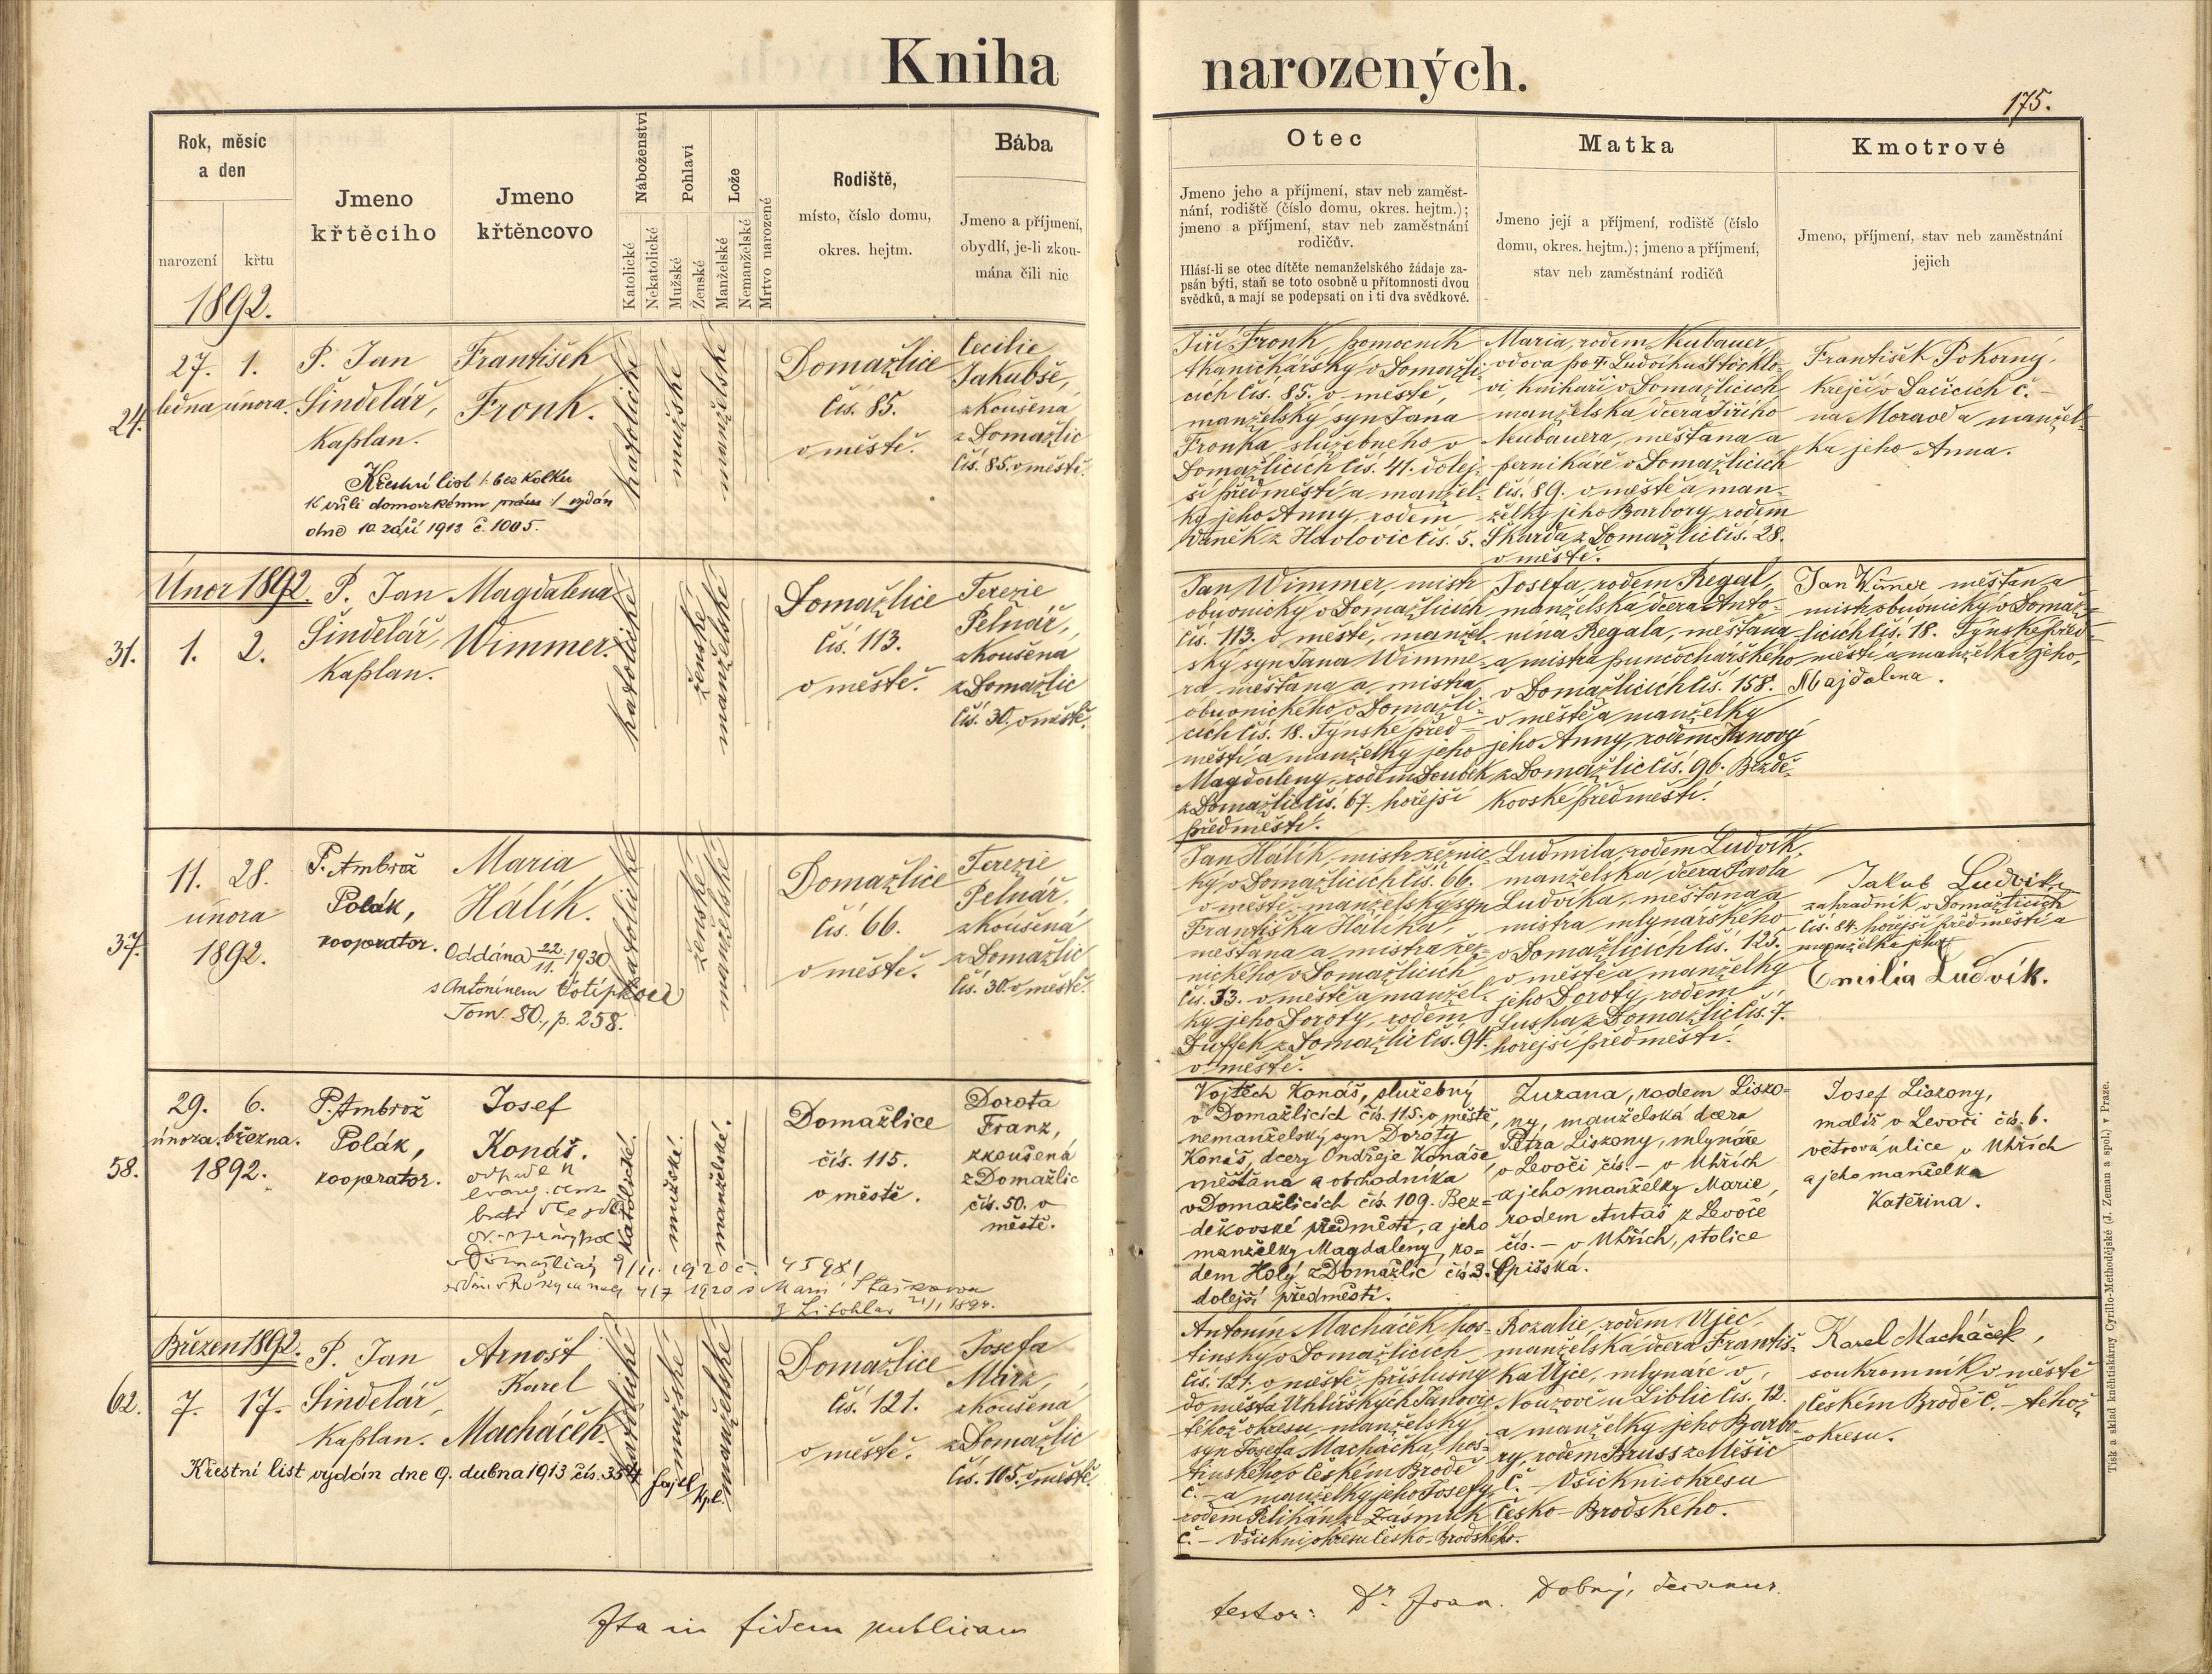 Kniha narozených.
175.
Rok, měsíc
a den
narození
křtu
1892.
Jmeno
křtěcího
Jmeno
křtěncovo
Náboženství
Katolické
Nekatolické
Pohlaví
Mužské
Ženské
Lože
Manželské
Nemanželské
Mrtvo narozené
Rodiště,
místo, číslo domu,
okres. hejtm.
Bába
Jmeno a příjmení,
obydlí, je-li zkou-
mána čili nic
Otec
Jmeno jeho a příjmení, stav neb zaměst-
nání, rodiště (číslo domu, okres. hejtm.);
jmeno a příjmení, stav neb zaměstnání
rodičův.
Hlásí-li se otec dítěte nemanželského žádaje za-
psán býti, staň se toto osobně u přítomnosti dvou
svědků, a mají se podepsati on i ti dva svědkové.
Matka
Jmeno její a příjmení, rodiště (číslo
domu, okres. hejtm.); jmeno a příjmení,
stav neb zaměstnání rodičů
Kmotrové
Jmeno, příjmení, stav neb zaměstnání
jejich
24.
27. 1.
ledna února.
P. Jan
Šindelář,
kaplan.
František
Fronk.
Křestní list /: bez kolku
k vůli domovskému právu :/ vydán
dne 10 září 1913 č. 1005.
katolické
mužské
manželské
Domažlice
čís. 85.
v městě.
Cecilie
Jakubše,
zkoušená
z Domažlic
čís. 85. v městě.
Jiří Fronk, pomocník
tkaničkářský v Domažli-
cích čís. 85. v městě,
manželský syn Jana
Fronka, služebného v
Domažlicích čís. 41. dolej-
ší předměstí a manžel-
ky jeho Anny, rodem
Vaněk z Havlovic čís. 5.
Maria, rodem Neubauer,
vdova po † Ludvíku Stöcklo-
vi, knihaři v Domažlicích
manželská dcera Jiřího
Neubauera, měšťana a
perníkáře v Domažlicích
čís. 89. v městě a man-
želky jeho Barbory, rodem
Škarda z Domažlic čís. 28.
v městě.
František Pokorný,
krejčí v Dačicích č. –
na Moravě a manžel-
ka jeho Anna.
Únor 1892.
31.
1. 2.
P. Jan
Šindelář,
kaplan.
Magdalena
Wimmer.
katolické
ženské
manželské
Domažlice
čís. 113.
v městě.
Terezie
Pelnář,
zkoušená
z Domažlic
čís. 30. v městě.
Jan Wimmer, mistr
obuvnický v Domažlicích
čís. 113. v městě, manžel-
ský syn Jana Wimme-
ra, měšťana a mistra
obuvnického v Domažli-
cích čís. 18. Týnské před-
městí a manželky jeho
Magdaleny, rodem Soubík
z Domažlic čís. 67. hořejší
předměstí.
Josefa, rodem Regal,
manželská dcera Anto-
nína Regala, měšťana
a mistra punčochářského
v Domažlicích čís. 158.
v městě a manželky
jeho Anny, rodem Janový
z Domažlic čís. 96. Bezdě-
kovské předměstí.
Jan Wimer měšťan a
mistr obuvnický v Domaž-
licích čís. 18. Týnské před-
městí a manželka jeho,
Majdalena.
37.
11. 28.
února
1892.
P. Ambrož
Polák,
kooperator.
Maria
Hálík.
Oddána 22/11. 1930
s Antonínem
Tom. 80., p. 258.
katolické
ženské
manželské
Domažlice
čís. 66.
v městě.
Terezie
Pelnář,
zkoušená
z Domažlic
čís. 30. v městě.
Jan Hálík, mistr řeznic-
ký v Domažlicích čís. 66.
v městě, manželský syn
Františka Hálíka,
měšťana a mistra řez-
nického v Domažlicích
čís. 33. v městě a manžel-
ky jeho Doroty, rodem
Duffek z Domažlic čís. 94.
v městě.
Ludmila, rodem Ludvík,
manželská dcera Pavla
Ludvíka, měšťana a
mistra mlynářského
v Domažlicích čís. 125.
v městě a manželky
jeho Doroty, rodem
Suska z Domažlic čís. 7.
hořejší předměstí.
Jakub Ludvík
zahradník v Domažlicích
čís. 84. hořejší předměstí a
manželka jeho
Emilia Ludvík.
58.
29. 6.
února. března.
1892.
P. Ambrož
Polák,
kooperator.
Josef
Konáš.
katolické.
mužské.
manželské.
Domažlice
čís. 115.
v městě.
Dorota
Franz,
zkoušená
z Domažlic
čís. 50. v
městě.
9/11. 1920 č. 45981
4/7 1920 s Marií
21/1 1894.
Vojtěch Konáš, služebný
v Domažlicích čís. 115. v městě,
nemanželský syn Doroty
Konáš, dcery Ondřeje Konáše,
měšťana a obchodníka
v Domažlicích čís. 109. Bez-
děkovské předměstí, a jeho
manželky Magdaleny, ro-
dem Holý z Domažlic čís. 3.
dolejší předměstí.
Zuzana, rodem Liszo-
ny, manželská dcera
Petra Liszony, mlynáře
v Levoči čís. – v Uhřích
a jeho manželky Marie,
rodem Antaš z Levoče
čís. – v Uhřích, stolice
Spišská.
Josef Liszony,
malíř v Levoči čís. 6.
větrová ulice v Uhřích
a jeho manželka
Kateřina.
Březen 1892.
62.
7. 17.
P. Jan
Šindelář,
kaplan.
Arnošt
Karel
Macháček.
Křestní list vydán dne 9. dubna 1913 čís. 354
kpl.
katolické
mužské
manželské
Domažlice
čís. 121.
v městě.
Josefa
März,
zkoušená
z Domažlic
čís. 105. v městě.
Antonín Macháček, hos-
tinský v Domažlicích
čís. 121. v městě, příslušný
do města Uhlířských Janovic
téhož okresu, manželský
syn Josefa Macháčka, hos-
tinského v Českém Brodě
č. – a manželky jeho Josefy,
rodem Pelikán z Zásmuk
č. – všickni okresu Česko-Brodského.
Rozalie, rodem Ujec,
manželská dcera Františ-
ka Ujce, mlynáře v
Nouzově u Liblic čís. 12.
a manželky jeho Barbo-
ry, rodem Bruss z Měšic
č. – všickni okresu
Česko-Brodského.
Karel Macháček,
soukromník v městě
Českém Brodě č. – téhož
okresu.
Ita in fidem publicam
testor: Dr. Joan. Dobrý, decanus.
Tisk a sklad kněhtiskárny Cyrillo-Methodějské (J. Zeman a spol.) v Praze.